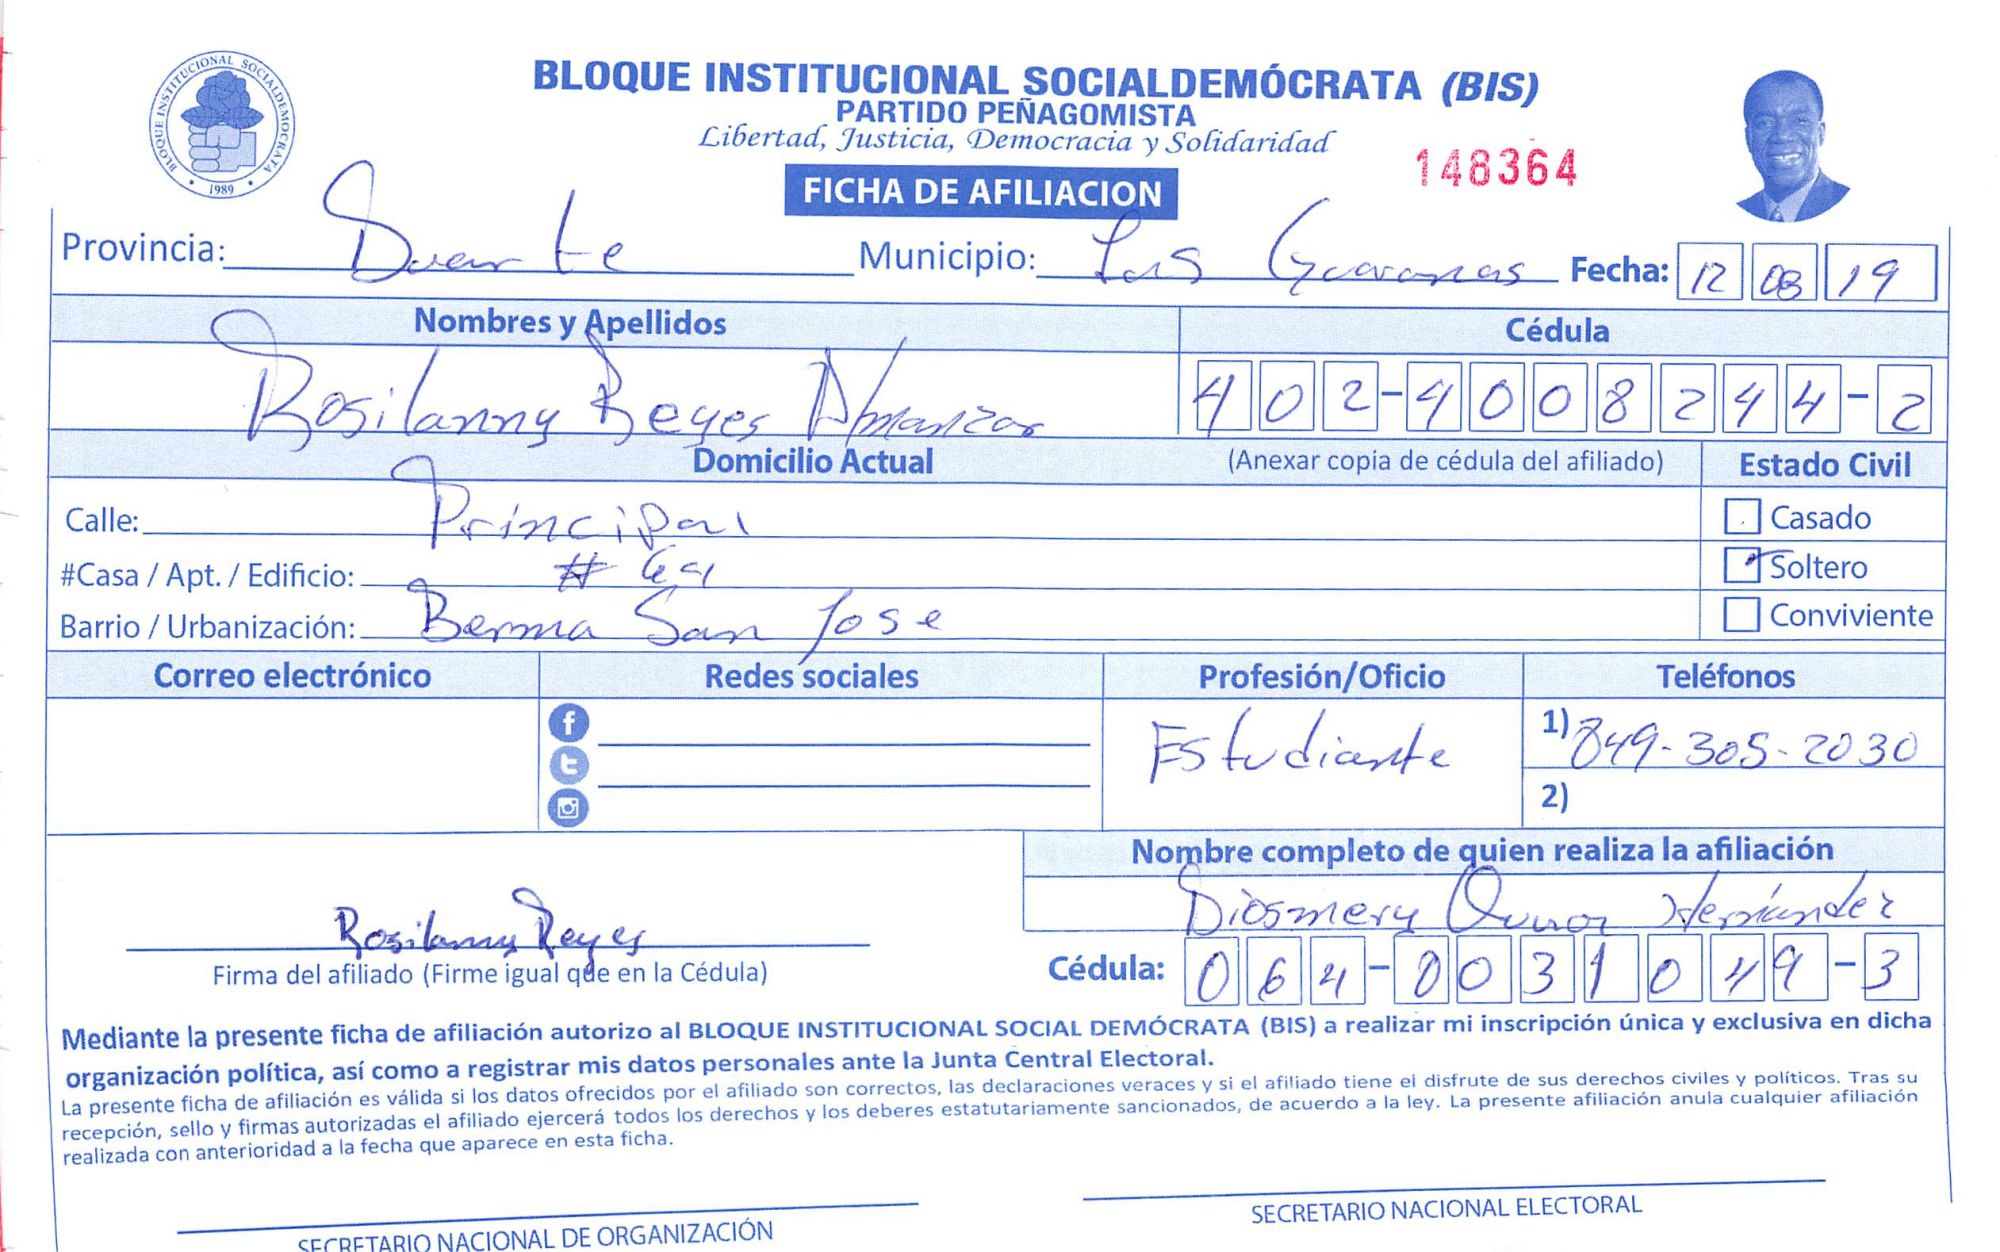 BLOQUE INSTITUCIONAL SOCIALDEMOCRATA
1989
BLOQUE INSTITUCIONAL SOCIALDEMÓCRATA (BIS)
PARTIDO PEÑAGOMISTA
Libertad, Justicia, Democracia y Solidaridad
148364
FICHA DE AFILIACION
Provincia: Duarte Municipio: Las Guaranas Fecha: 12 08 19
Nombres y Apellidos Cédula
Rosilanny Reyes Almanzar 402-4008244-2
Domicilio Actual (Anexar copia de cédula del afiliado) Estado Civil
Calle: Principal Casado
#Casa / Apt. / Edificio: # Soltero
Barrio / Urbanización: Berma San Jose Conviviente
Correo electrónico Redes sociales Profesión/Oficio Teléfonos
Estudiante 1) 849-305-2030
2)
Nombre completo de quien realiza la afiliación
Diosmery Hernández
Rosilanny Reyes
Firma del afiliado (Firme igual que en la Cédula) Cédula: 064-0031049-3
Mediante la presente ficha de afiliación autorizo al BLOQUE INSTITUCIONAL SOCIAL DEMÓCRATA (BIS) a realizar mi inscripción única y exclusiva en dicha
organización política, así como a registrar mis datos personales ante la Junta Central Electoral.
La presente ficha de afiliación es válida si los datos ofrecidos por el afiliado son correctos, las declaraciones veraces y si el afiliado tiene el disfrute de sus derechos civiles y políticos. Tras su
recepción, sello y firmas autorizadas el afiliado ejercerá todos los derechos y los deberes estatutariamente sancionados, de acuerdo a la ley. La presente afiliación anula cualquier afiliación
realizada con anterioridad a la fecha que aparece en esta ficha.
SECRETARIO NACIONAL DE ORGANIZACIÓN SECRETARIO NACIONAL ELECTORAL